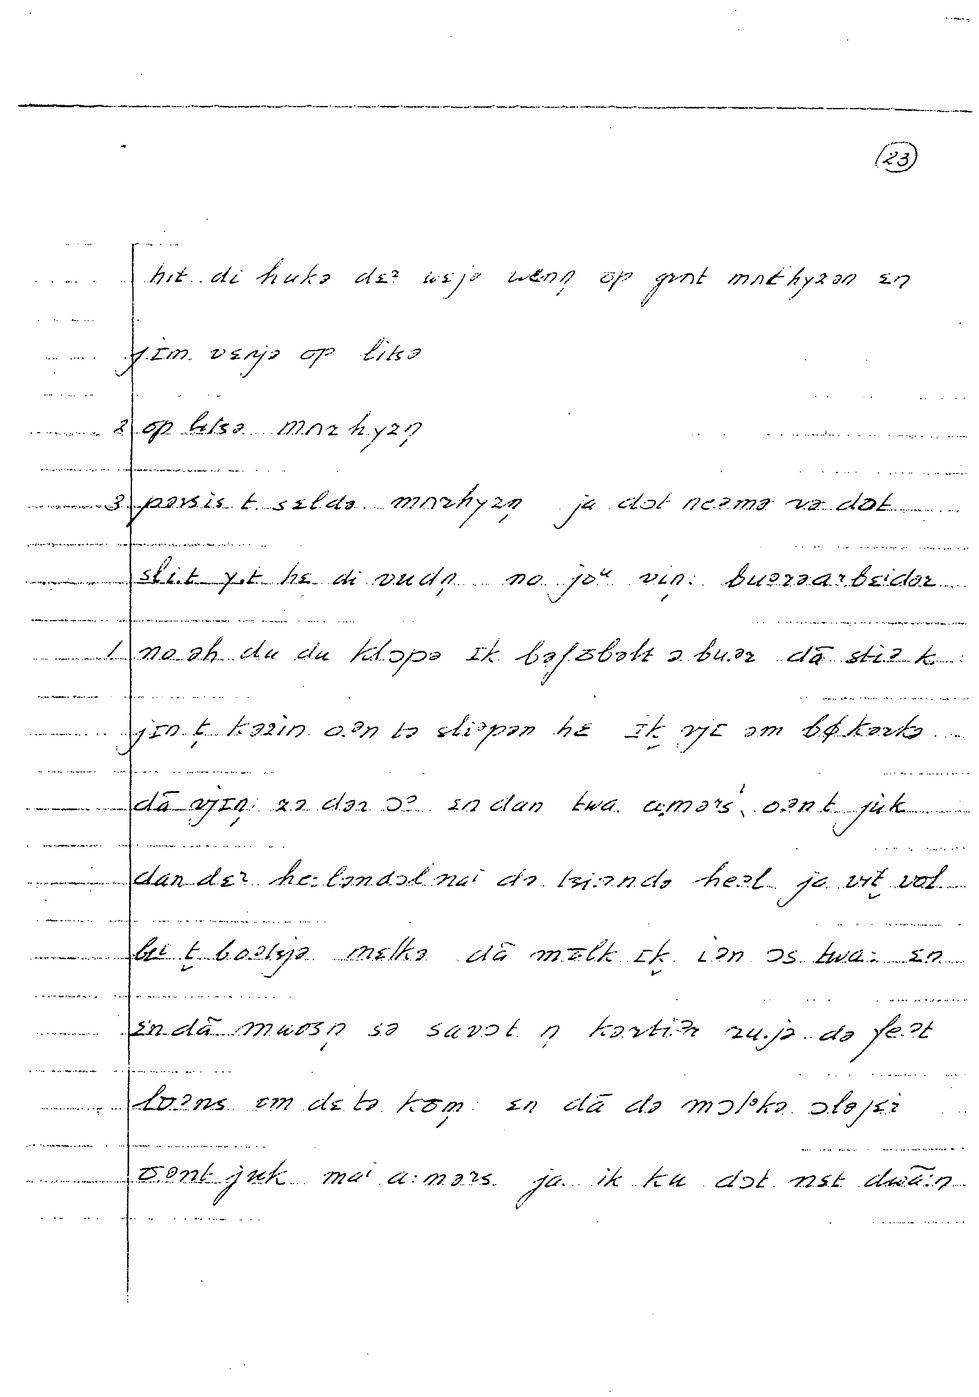 23
hɪt di hukə dɛr wɛjə wɛnn̩ op gront mɒnhyzən ɛn
jɪm vɛnjə op litsə
2 op lɪtsə mɒnhyzn̩
3 pərsis t sɛldə mɒnhyzn̩ ja dɔt neəmə və dɔt
sli.t y.t hɛ di vudn̩ no joᵘ vin̩: buərəarbɛidər
1 no əh du du klɔpə ɪk ə buər dā stiə k
jɪn t̬ kəzin o.ən tə sliəpən hɛ ɪk̬ vjɪ əm bøkərkə
dā vjɪn̩: zə dər ɔə ɛn dan twa a.mərs o.ən t juk
dan dɛr he:ləndəl nai də tsjəndə heəl ja vɪt̬ vol
bɛi t̬ boəltjə mɛlkə dā mɛ̄lk ɪk̬ iən ɔs twa: ɛn
ɛn dā muosn̩ sə savɔt n̩ kərtiər ru.jə də feət
loəns om dɛ tə kōm̩: ɛn dā də mɔlᵊkə
ōənt juk mai a:mərs ja ik ku dɔt nɛt dwā:n